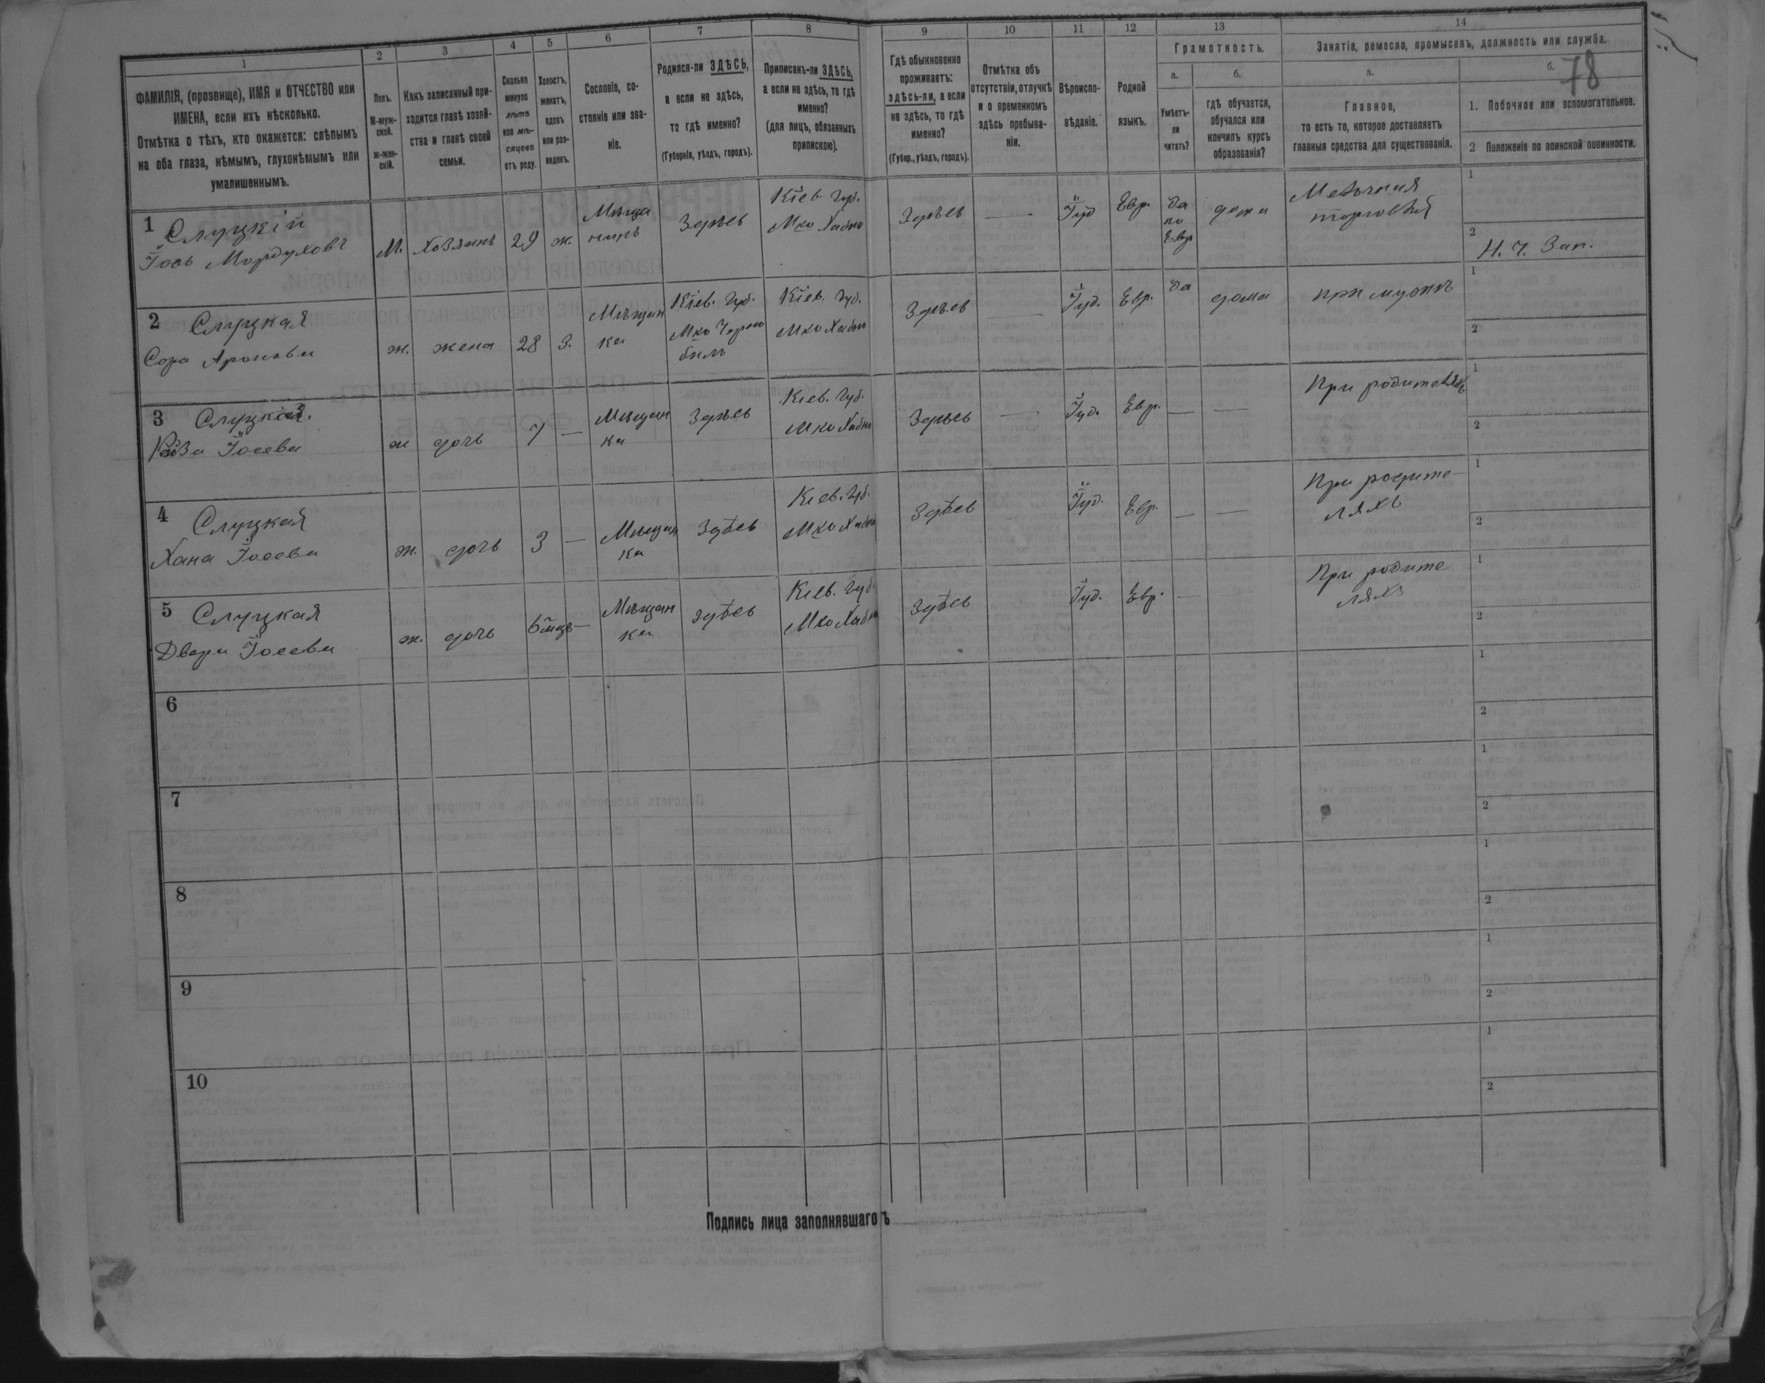 1 2 3 4 5 6 7 8 9 10 11 12 13 14
78
ФАМИЛІЯ, (прозвище), ИМЯ и ОТЧЕСТВО или
ИМЕНА, если ихъ нѣсколько.
Отмѣтка о тѣхъ, кто окажется: слѣпымъ
на оба глаза, нѣмымъ, глухонѣмымъ или
умалишеннымъ.
Полъ.
М-муж-
ской.
ж-жен-
скій.
Какъ записанный при-
ходится главѣ хозяй-
ства и главѣ своей
семьи.
Сколько
минуло
лѣтъ
или мѣ-
сяцевъ
отъ роду.
Холостъ,
женатъ,
вдовъ
или раз-
веденъ.
Сословіе, со-
стояніе или зва-
ніе.
Родился-ли ЗДѢСЬ,
а если не здѣсь,
то гдѣ именно?
(Губернія, уѣздъ, городъ).
Приписанъ-ли ЗДѢСЬ,
а если не здѣсь, то гдѣ
именно?
(для лицъ, обязанныхъ
припискою).
Гдѣ обыкновенно
проживаетъ:
здѣсь-ли, а если
не здѣсь, то гдѣ
именно?
(Губер., уѣздъ, городъ).
Отмѣтка объ
отсутствіи, отлучкѣ
и о временномъ
здѣсь пребыва-
ніи.
Вѣроиспо-
вѣданіе.
Родной
языкъ.
Грамотность.
а.
Умѣетъ-
ли
читать?
б.
гдѣ обучается,
обучался или
кончилъ курсъ
образованія?
Занятіе, ремесло, промыселъ, должность или служба.
а.
Главное,
то есть то, которое доставляетъ
главныя средства для существованія.
б.
1. Побочное или вспомогательное.
2 Положеніе по воинской повинности.
1 Слуцкій
Іось Мордуховъ
М. Хозяинъ 29 ж.
Мѣща
нинъ
Здѣсь
Кіев. Губ.
Мко Хабно
Здѣсь — Іуд Евр.
да
по
Евр
дома
Мелочная
торговля
1
2 Н. Ч. Зап.
2 Слуцкая
Сора Аронова
ж. жена 28 З.
Мѣщан
ка
Кіев. Губ.
Мко Черно
быль
Кіев. Губ.
Мко Хабно
Здѣсь — Іуд. Евр. да дома при мужѣ
1
2
3 Слуцкая.
Роза Іосева
ж дочь 7 —
Мѣщан
ка
Здѣсь
Кіев. Губ.
Мко Хабно
Здѣсь — Іуд. Евр. — —
При родителяхъ
1
2
4 Слуцкая
Хана Іосева
ж. дочь 3 —
Мѣщан
ка
Здѣсь
Кіев. Губ.
Мко Хабно
Здѣсь Іуд. Евр. — —
При родите-
ляхъ
1
2
5 Слуцкая
Двера Іосева
ж. дочь —
Мѣщан
ка
здѣсь
Кіев. Губ.
Мко Хабно
Здѣсь Іуд. Евр. —
При родите
ляхъ
1
2
6
1
2
7
1
2
8
1
2
9
1
2
10
1
2
Подпись лица заполнявшаго